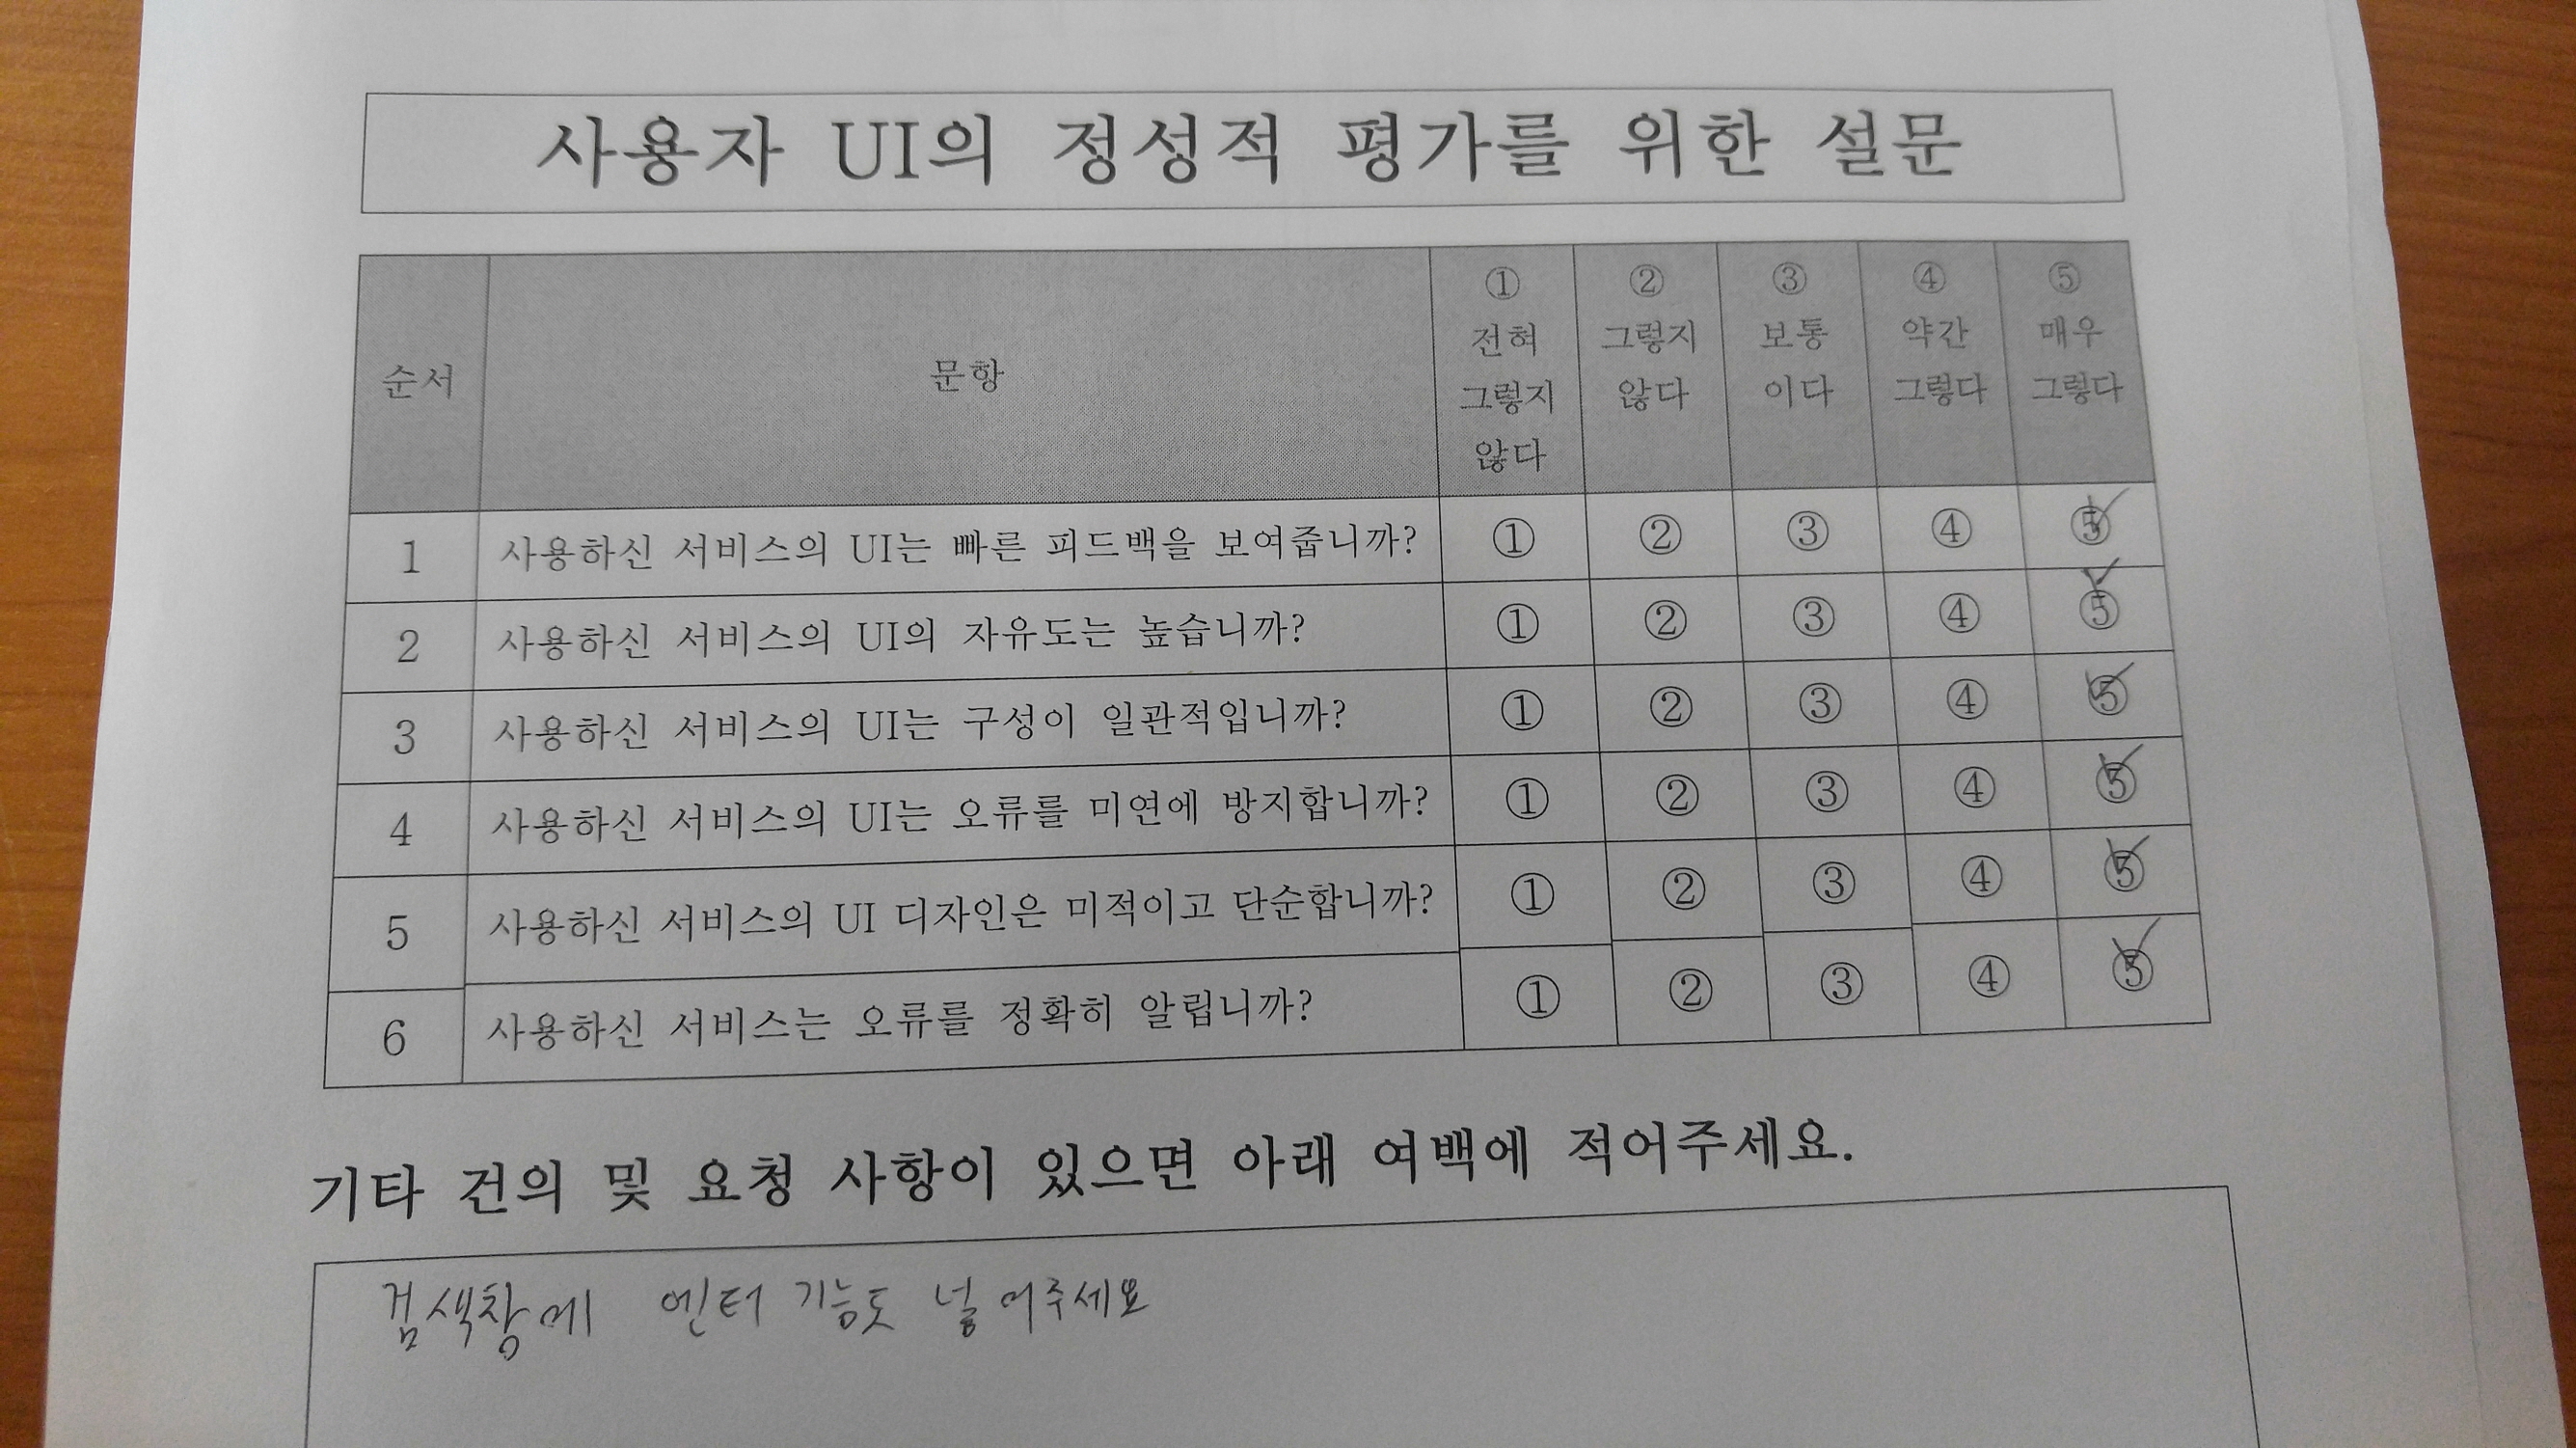 사용자 UI의 정성적 평가를 위한 설문
순서 문항 ① 전혀 그렇지 않다 ② 그렇지 않다 ③ 보통 이다 ④ 약간 그렇다 ⑤ 매우 그렇다
1 사용하신 서비스의 UI는 빠른 피드백을 보여줍니까? ① ② ③ ④ ⑤
2 사용하신 서비스의 UI의 자유도는 높습니까? ① ② ③ ④ ⑤
3 사용하신 서비스의 UI는 구성이 일관적입니까? ① ② ③ ④ ⑤
4 사용하신 서비스의 UI는 오류를 미연에 방지합니까? ① ② ③ ④ ⑤
5 사용하신 서비스의 UI 디자인은 미적이고 단순합니까? ① ② ③ ④ ⑤
6 사용하신 서비스는 오류를 정확히 알립니까? ① ② ③ ④ ⑤
기타 건의 및 요청 사항이 있으면 아래 여백에 적어주세요.
검색창에 엔터 기능도 넣어주세요